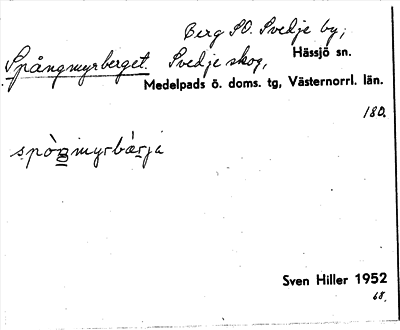 Berg SO. Svedje by;
Spångmyrberget. Svedje skog, Hässjö sn.
Medelpads ö. doms. tg, Västernorrl. län.
180.
spòŋmyrbæ̀rjá
Sven Hiller 1952
68.